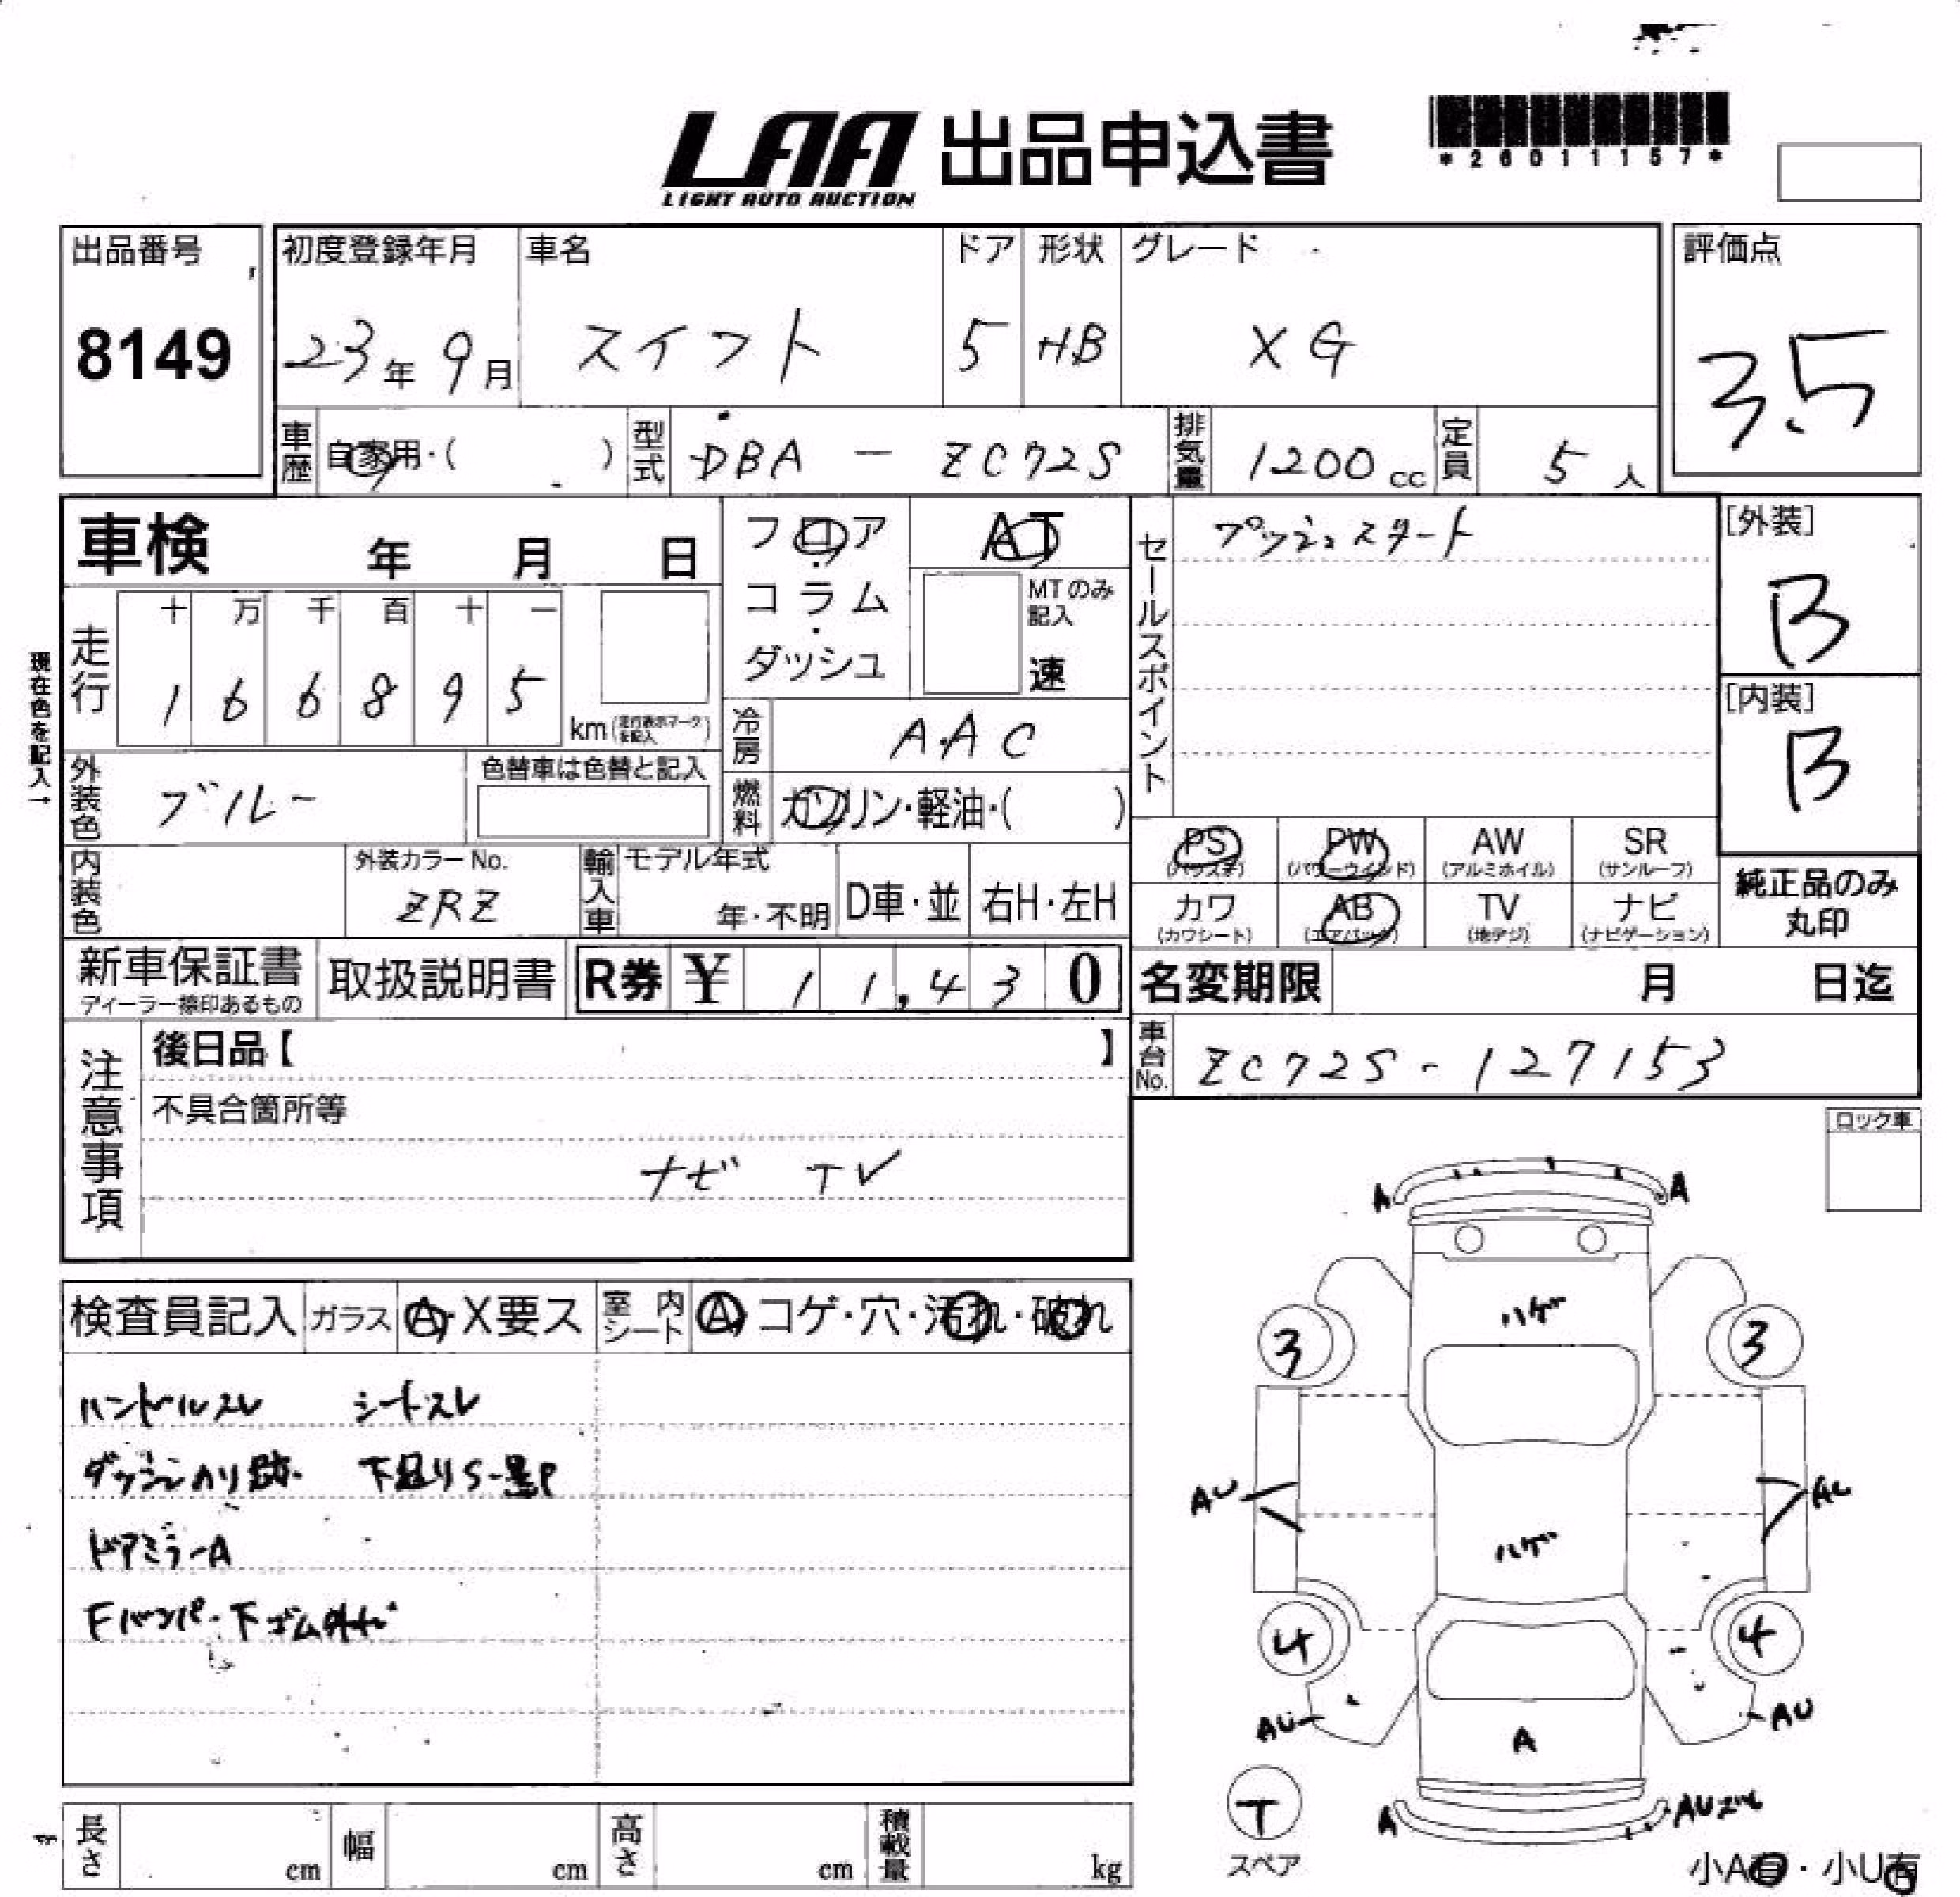 LAA 出品申込書
LIGHT AUTO AUCTION
*26011157*
出品番号
8149
初度登録年月
23年 9月
車名
スイフト
ドア
5
形状
HB
グレード
XG
評価点
3.5
車歴 自家用・( )
型式 DBA - ZC72S
排気量 1200 cc
定員 5 人
車検 年 月 日
フロア・コラム・ダッシュ
AT
MTのみ記入
速
セールスポイント
プッシュスタート
[外装]
B
[内装]
B
現在色を記入→
走行
十 万 千 百 十 一
1 6 6 8 9 5
km (走行表示マークを記入)
冷房 AAC
外装色 ブルー
色替車は色替と記入
燃料 ガソリン・軽油・( )
PS (パワステ)
PW (パワーウインド)
AW (アルミホイル)
SR (サンルーフ)
カワ (カワシート)
AB (エアバック)
TV (地デジ)
ナビ (ナビゲーション)
純正品のみ丸印
内装色
外装カラーNo.
ZRZ
輸入車
モデル年式
年・不明
D車・並
右H・左H
新車保証書
ディーラー捺印あるもの
取扱説明書
R券 ¥ 11,430
名変期限 月 日迄
車台No. ZC72S-127153
注意事項
後日品【 】
不具合箇所等
ナビ TV
ロック車
検査員記入
ガラス A・X要ス
室内シート A・コゲ・穴・汚れ・破れ
ハンドルスレ シートスレ
ダッシュノリ跡 下廻りS-黒P
ドアミラーA
Fバンパー下ゴム外れ
A A
ハゲ
3 3
AU AU
ハゲ
4 4
AU AU
A
T
スペア
A AUズレ
小A有・小U有
長さ cm
幅 cm
高さ cm
積載量 kg